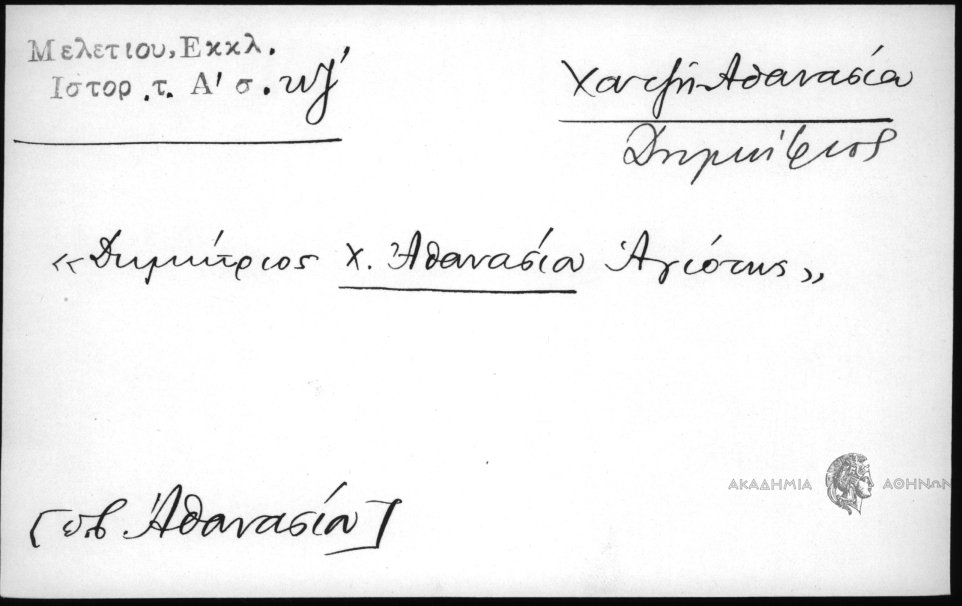 Μελετιου, Εκκλ.
Ιστορ. τ. Α' σ. κζ'
Χατζη-Αθανασίου
Δημήτριος
«Δημήτριος χ. Ἀθανασίου Ἀγιώτης»
[πβ Ἀθανασίου]
ΑΚΑΔΗΜΙΑ ΑΘΗΝΩΝ